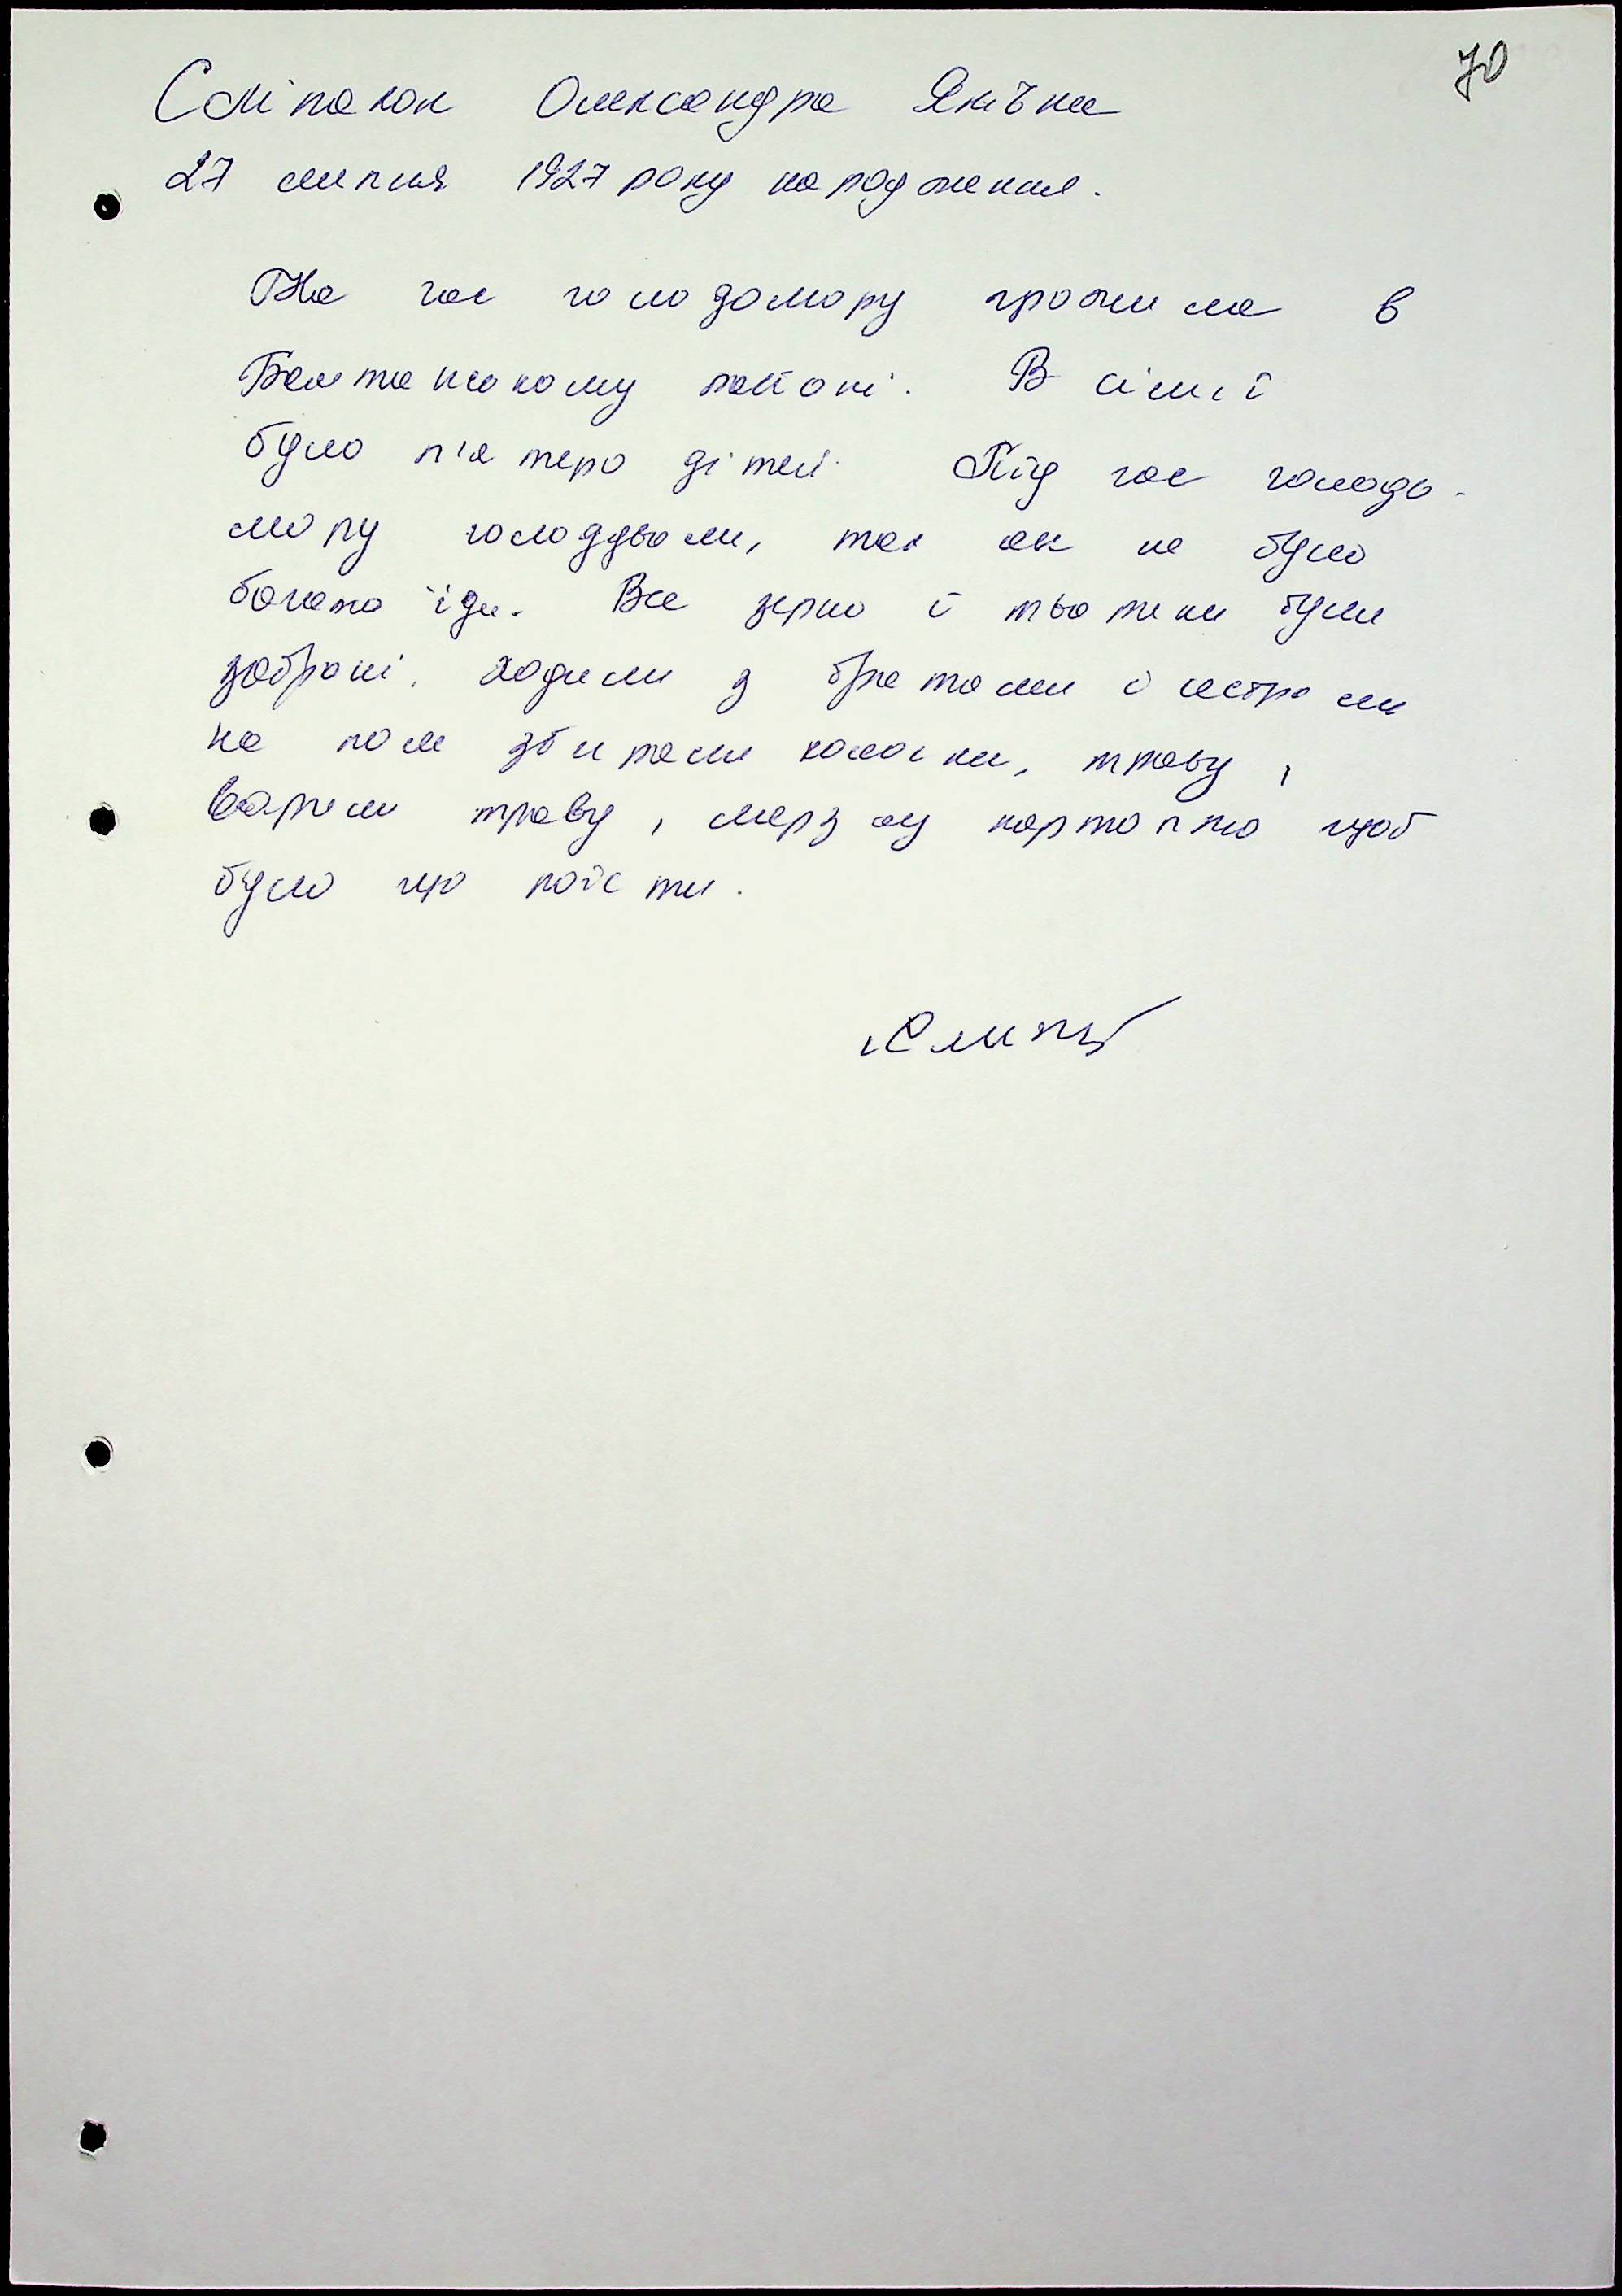 70
Сліпачок Олександра Яківна
27 липня 1927 року народження.
На час голодомору прожила в
Баштанському районі. В сім'ї
було п'ятеро дітей. Під час голодо-
мору голодували, так як не було
багато їди. Все зерно і тварини були
забрані. Ходили з братами і сестрами
на поле збирали колоски, траву,
варили траву, мерзлу картоплю щоб
було що поїсти.